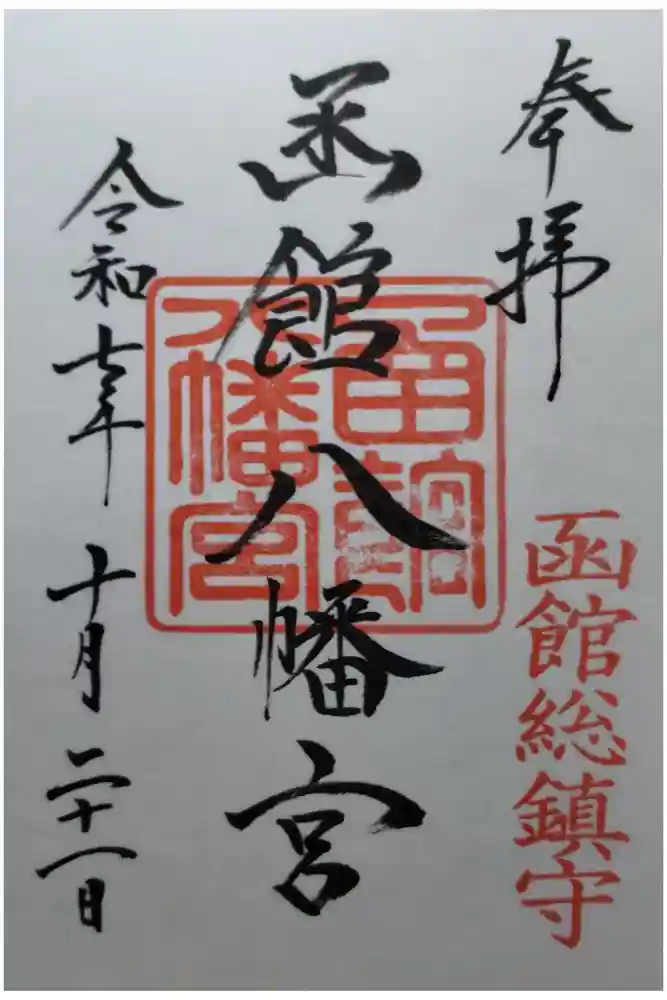 奉拝
函館総鎮守
函館八幡宮
令和七年十月二十一日